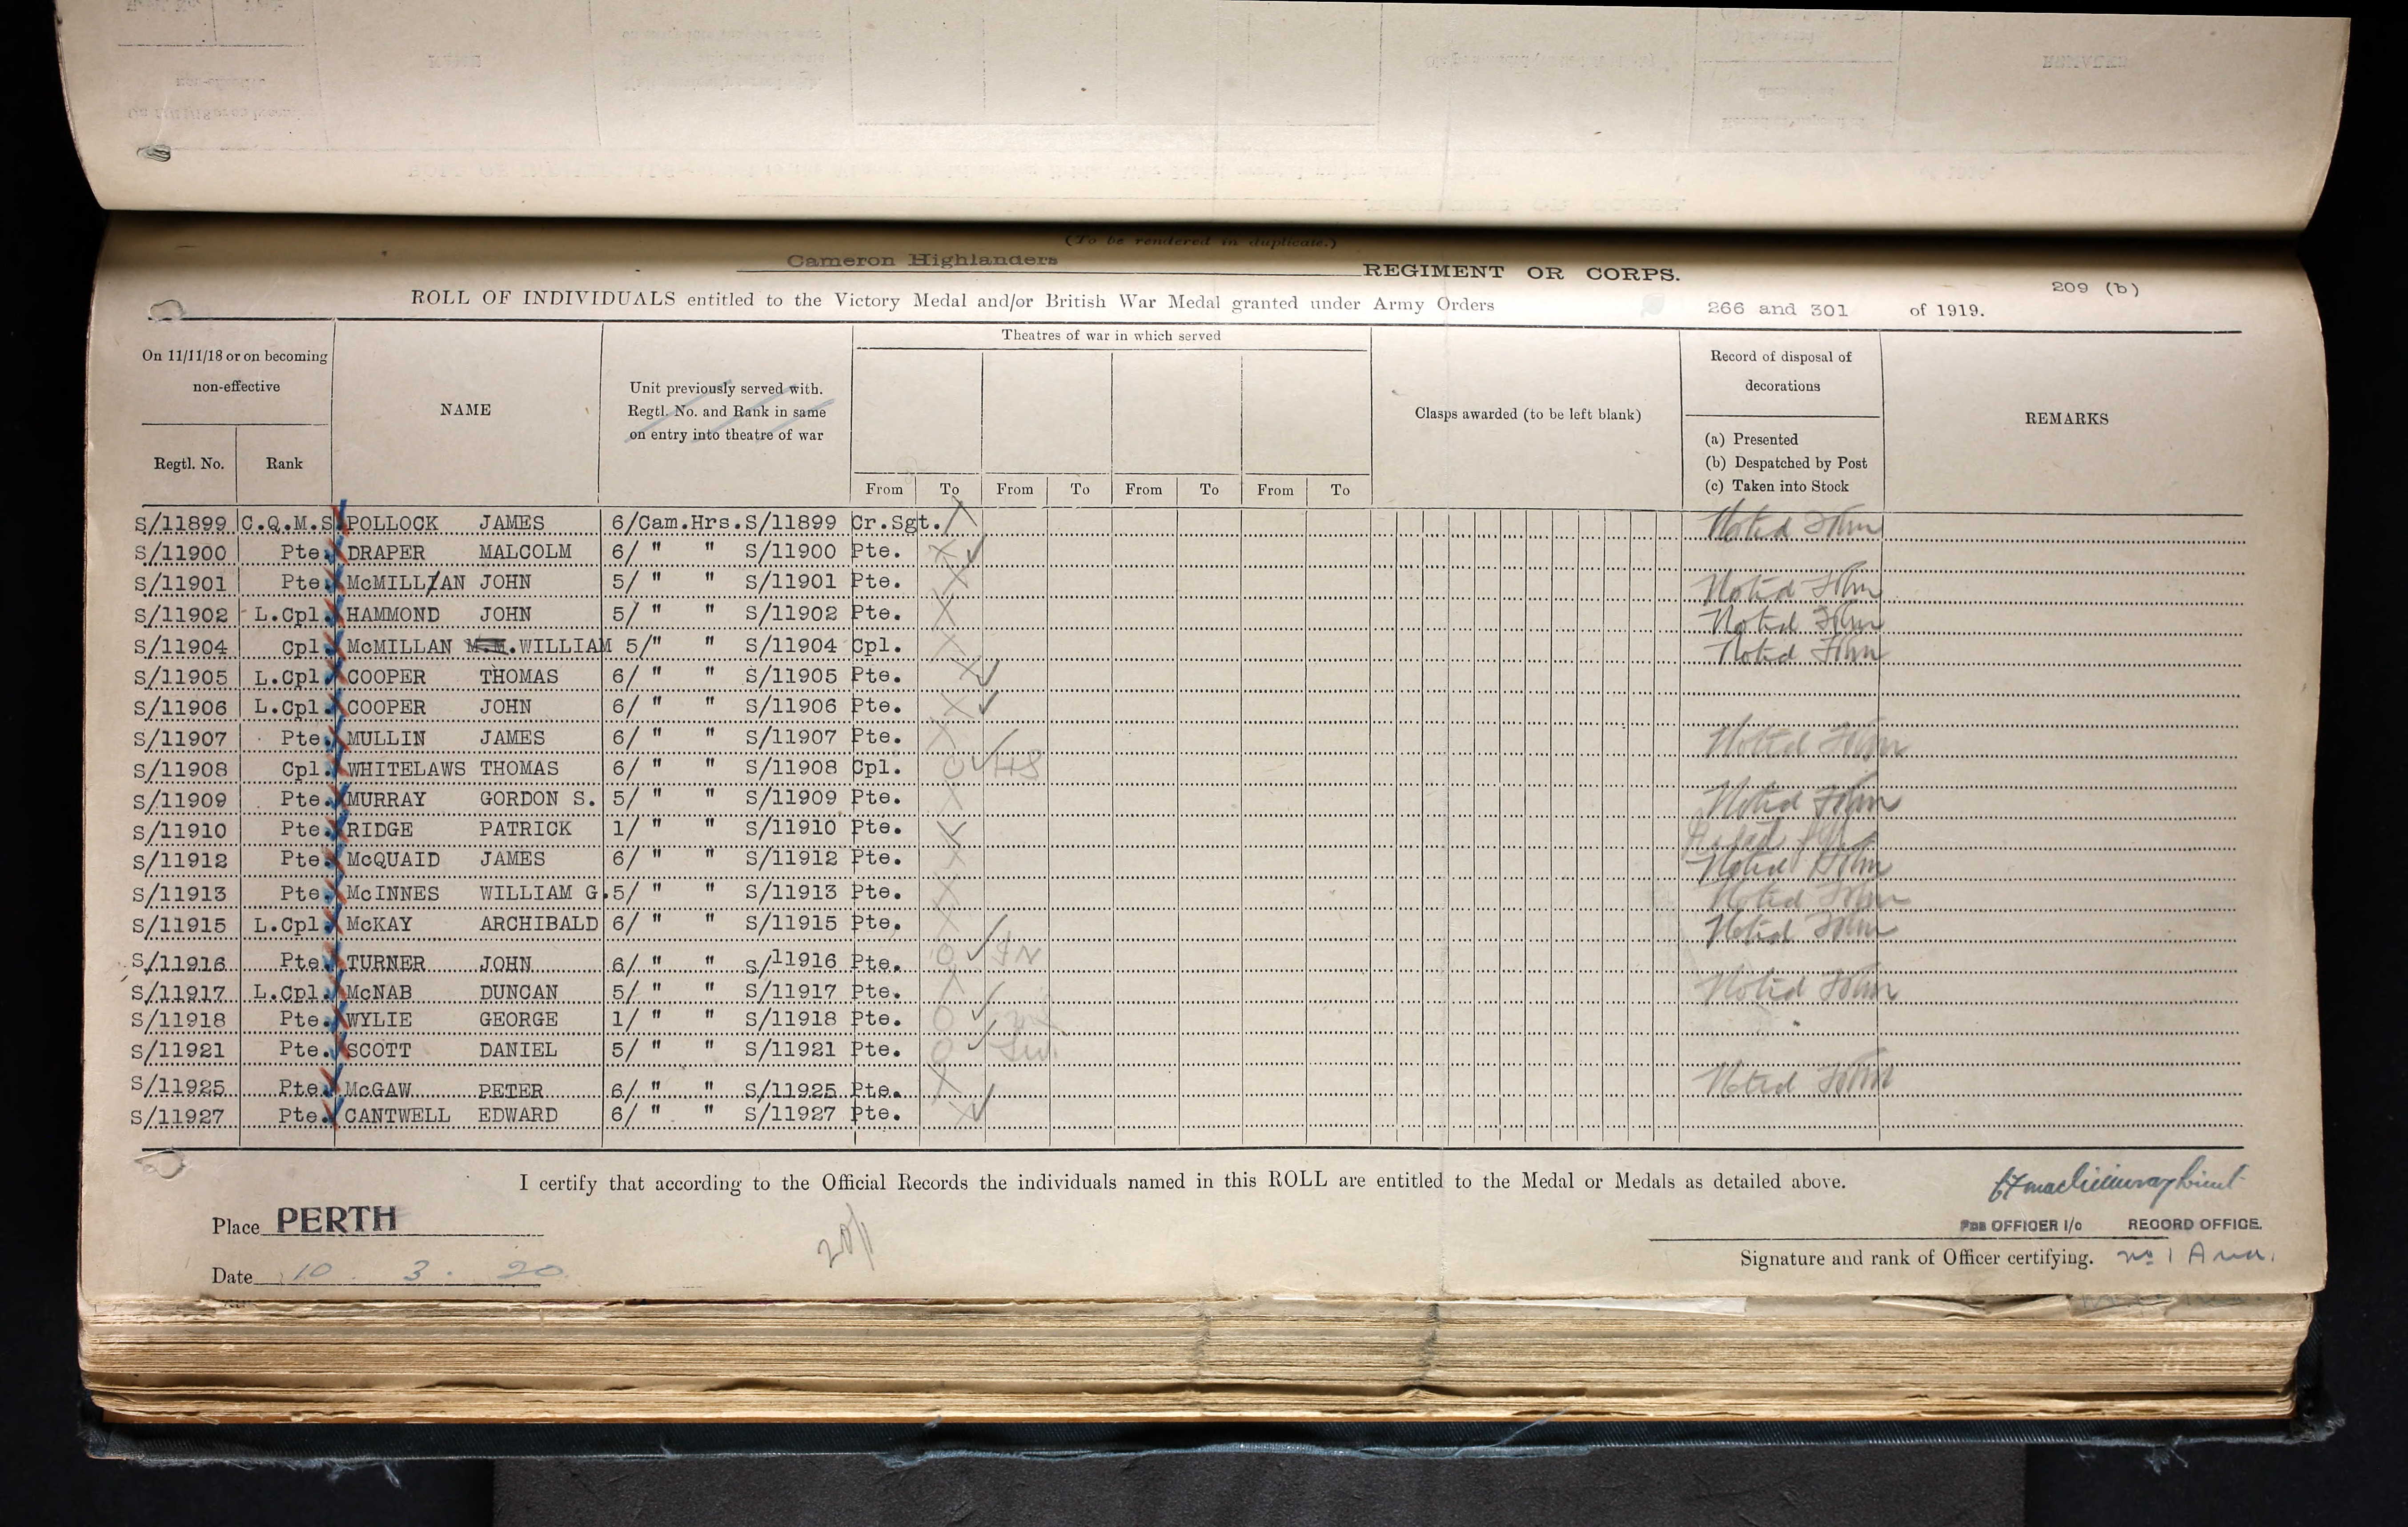 (To be rendered in duplicate.)
Cameron Highlanders REGIMENT OR CORPS.
209 (b)
ROLL OF INDIVIDUALS entitled to the Victory Medal and/or British War Medal granted under Army Orders 266 and 301 of 1919.
On 11/11/18 or on becoming non-effective
Regtl. No.
Rank
NAME
Unit previously served with. Regtl. No. and Rank in same on entry into theatre of war
Theatres of war in which served
From To From To From To From To
Clasps awarded (to be left blank)
Record of disposal of decorations
(a) Presented
(b) Despatched by Post
(c) Taken into Stock
REMARKS
S/11899 C.Q.M.S POLLOCK JAMES 6/Cam.Hrs.S/11899 Cr.Sgt. X Noted
S/11900 Pte. DRAPER MALCOLM 6/ " " S/11900 Pte. X ✓
S/11901 Pte. McMILLAN JOHN 5/ " " S/11901 Pte. X Noted
S/11902 L.Cpl. HAMMOND JOHN 5/ " " S/11902 Pte. X Noted
S/11904 Cpl. McMILLAN WILLIAM 5/" " S/11904 Cpl. X Noted
S/11905 L.Cpl. COOPER THOMAS 6/ " " S/11905 Pte. X ✓
S/11906 L.Cpl. COOPER JOHN 6/ " " S/11906 Pte. X ✓
S/11907 Pte. MULLIN JAMES 6/ " " S/11907 Pte. X Noted
S/11908 Cpl. WHITELAWS THOMAS 6/ " " S/11908 Cpl. O ✓ HS
S/11909 Pte. MURRAY GORDON S. 5/ " " S/11909 Pte. X Noted
S/11910 Pte. RIDGE PATRICK 1/ " " S/11910 Pte.
S/11912 Pte. McQUAID JAMES 6/ " " S/11912 Pte. X Noted
S/11913 Pte. McINNES WILLIAM G. 5/ " " S/11913 Pte. X Noted
S/11915 L.Cpl. McKAY ARCHIBALD 6/ " " S/11915 Pte. X Noted
S/11916 Pte. TURNER JOHN 6/ " " S/11916 Pte. O ✓
S/11917 L.Cpl. McNAB DUNCAN 5/ " " S/11917 Pte. X Noted
S/11918 Pte. WYLIE GEORGE 1/ " " S/11918 Pte. O ✓
S/11921 Pte. SCOTT DANIEL 5/ " " S/11921 Pte. O ✓
S/11925 Pte. McGAW PETER 6/ " " S/11925 Pte. X Noted
S/11927 Pte. CANTWELL EDWARD 6/ " " S/11927 Pte. X ✓
I certify that according to the Official Records the individuals named in this ROLL are entitled to the Medal or Medals as detailed above.
Place PERTH
FOR OFFICER I/c RECORD OFFICE.
Signature and rank of Officer certifying. No 1
Date 10. 3. 20.